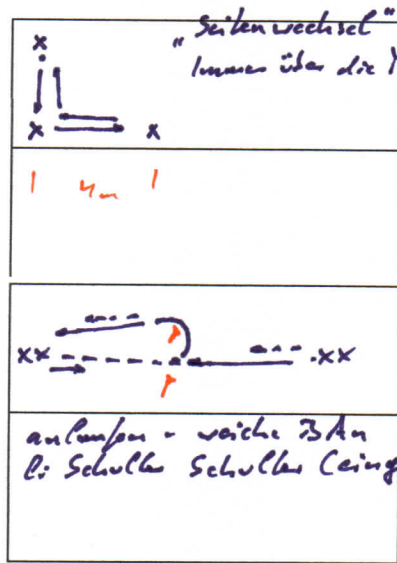 „Seitenwechsel"
Immer über die
x
x x
4m
xx .xx
anlaufen - weiche
li Schulter Schulter